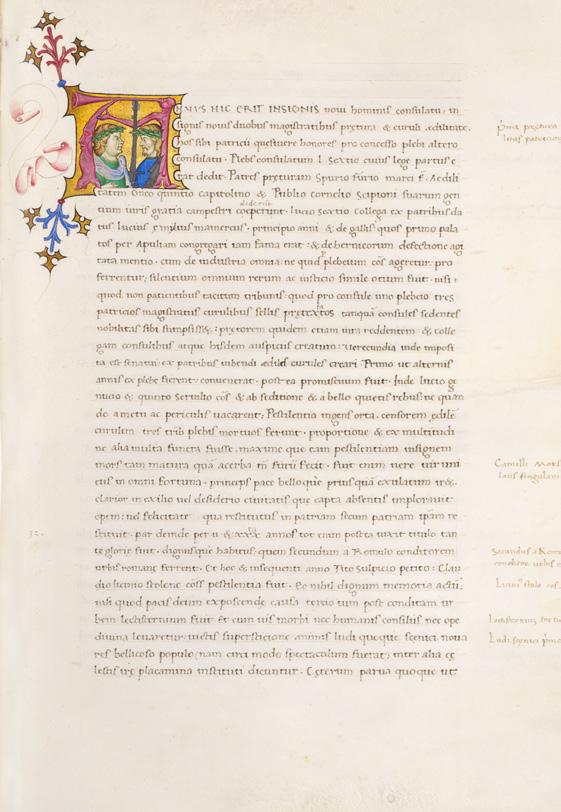 ANNUS HIC ERIT INSIGNIS novi hominis consulatu: in
signis novis duobus magistratibus pretura & curuli ædilitate.
hos sibi patricii quesiuere honores pro concesso plebi altero
consulatu. Plebs consulatum L. Sextio cuius lege partus e
rat dedit. Patres preturam Spurio furio marci f. Aedili
tatem Gneo quintio capitolino & Publio cornelio Scipioni suarum gen
tium uiris gratia campestri coeperunt. lucio sextio Collega ex patribus da
tus lucius Emylius mamercus. principio anni & de gallis quos primo pala
tos per Apuliam congregari iam fama erat: & de hernicorum defectione agi
tata mentio. cum de industria omnia: ne quid plebeium cos ageretur: pro
ferrentur: silentium omnium rerum ac iusticio simile otium fuit. nisi
quod non patientibus tacitum tribunis: quod pro consule uno plebeio tres
patricios magistratus curulibus sellis pretextos tanquã consules sedentes
nobilitas sibi sumpsisset: pretorem quidem etiam iura reddentem & colle
gam consulibus atque hisdem auspiciis creatum: uerecundia inde imposi
ta est senatui ex patribus iubendi ædiles curules creari Primo ut alternis
annis ex plebe fierent: conuenerat. postea promiscuum fuit. Inde lucio ge
nucio & quinto Seruilio cos & ab seditione & a bello quietis rebus ne quan
do a metu ac periculis uacarent: Pestilentia ingens orta. censorem ędilē
curulem tres trib plebis mortuos ferunt. proportione & ex multitudi
ne alia multa funera fuisse. maxime que eam pestilentiam insignem
mors tam matura quã acerba m̃ furii fecit. fuit enim uere uir uni
cus in omni fortuna. princeps pace bello que prius quã exulatum iret.
clarior in exilio uel desiderio ciuitatis que capta absentis implorauit
opem: uel felicitate qua restitutus in patriam secum patriam ipam re
stituit. par deinde per u & xxx annos tot enim postea uixit titulo tan
te glorie fuit. dignusque habitus quem secundum a Romulo conditorem
urbis romanę ferrent. Et hoc & insequenti anno Tito Sulpicio petito: Clau
dio licinio stolone coss pestilentia fuit. Eo nihil dignum memoria actū:
nisi quod pacis deum exposcende causa tercio tum post conditam ur
bem lectisternium fuit Et cum uis morbi nec humanis consiliis nec ope
diuina leuaretur: uictis superstitione animis ludi quoque scenici noua
res bellicoso populo: nam circi modo spectaculum fuerat: inter alia cę
lestis irę placamina instituti dicuntur. Cęterum parua quoque ut
pma pretura
Camilli Mors
laus singularis
32.
Secundus a Romu
conditor urbis
Licini stolo cos
Lectisternium
Ludi scenici